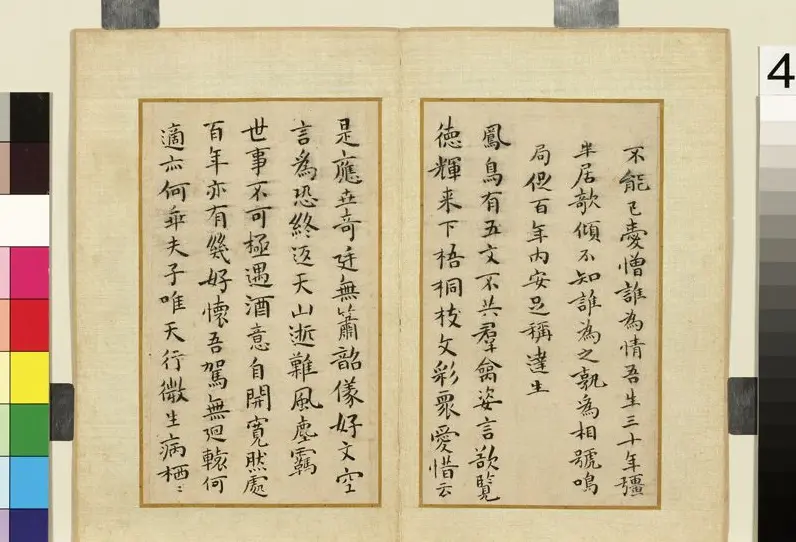 不能已憂憎誰為情吾生三十年彊
半居欹傾不知誰為之孰為相號鳴
局促百年內安足稱達生
鳳鳥有五文不共羣禽姿言欲覽
德輝来下梧桐枝文彩眾愛惜云
是應奇廷無簫韶儀好文空
言為恐終返天山逝難風塵羈
世事不可極遇酒意自開寬然處
百年亦有幾好懷吾駕無迴轅何
適亦何乖夫子唯天行微生病栖〻
4